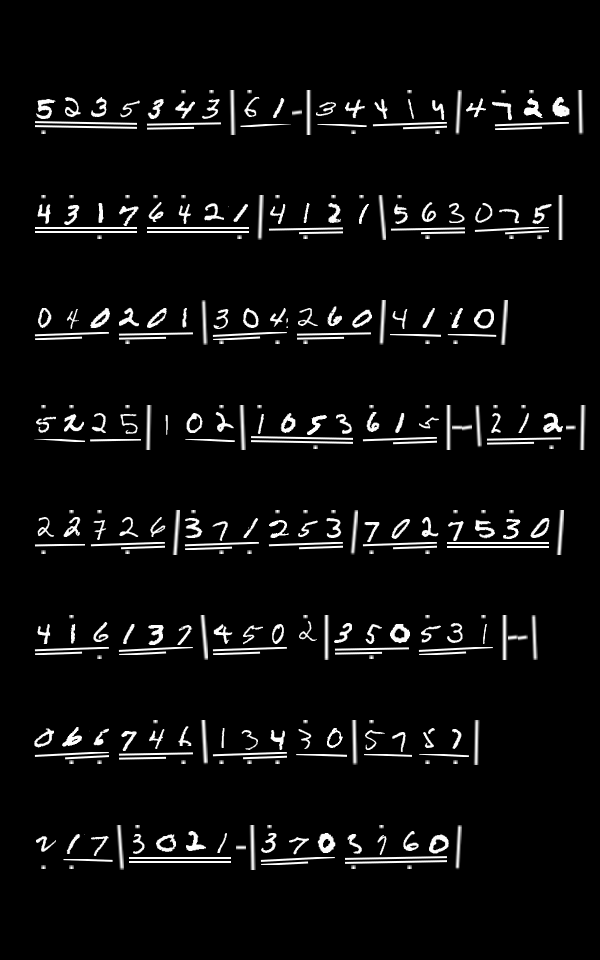 5 2 3 5 3 4 3 | 6 1 - | 3 4 4 1 4 | 4 7 2 6 |
4 3 1 7 6 4 2 1 | 4 1 2 1 | 5 6 3 0 7 5 |
0 4 0 2 0 1 | 3 0 4 2 6 0 | 4 1 1 0 |
5 2 2 5 | 1 0 2 | 1 0 5 3 6 1 5 | - - | 2 1 2 - |
2 2 7 2 6 | 3 7 1 2 5 3 | 7 0 2 7 5 3 0 |
4 1 6 1 3 7 | 4 5 0 2 | 3 5 0 5 3 1 | - - |
0 6 6 7 4 6 | 1 3 4 3 0 | 5 7 5 7 |
2 1 7 | 3 0 2 1 - | 3 7 0 5 7 6 0 |